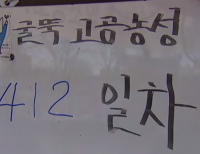 굴뚝 고공농성
412 일차